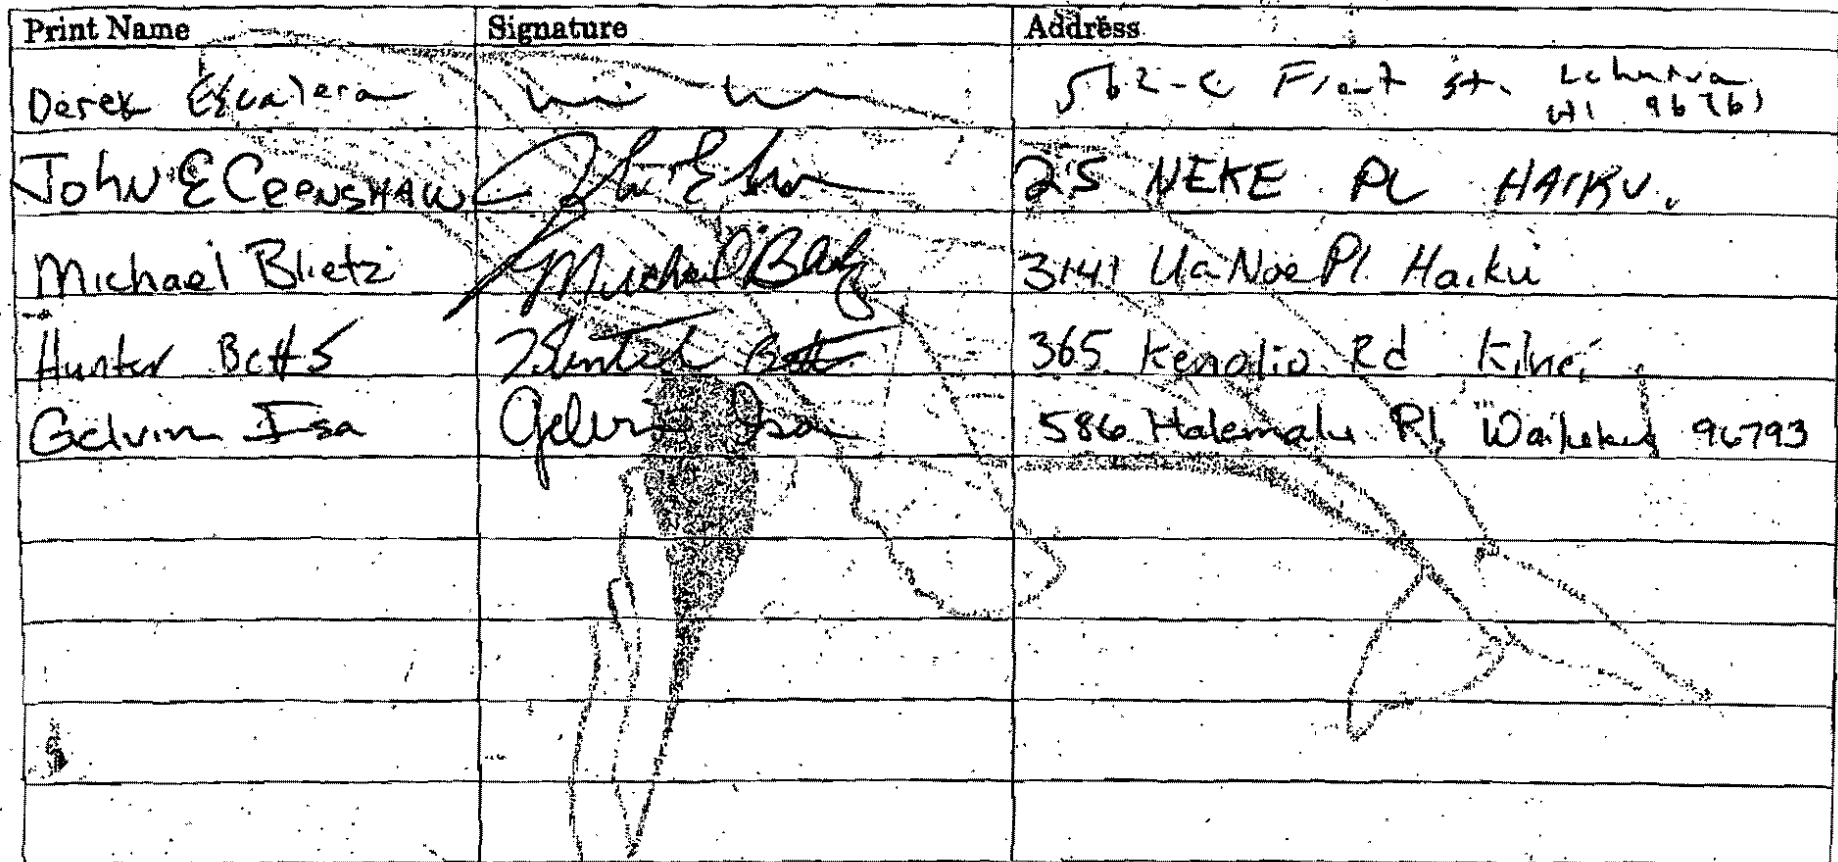 Print Name Signature Address
Derek Escalera 562-C Front St. Lahaina
HI 96761
John E Crenshaw John E 25 NEKE PL HAIKU.
Michael Blietz Michael Blietz 3141 Ua Noe Pl. Haiku
Hunter Betts Hunter Betts 365 Kenolio Rd Kihei
Gelvin Isa Gelvin Isa 586 Halemalu Pl. Wailuku 96793